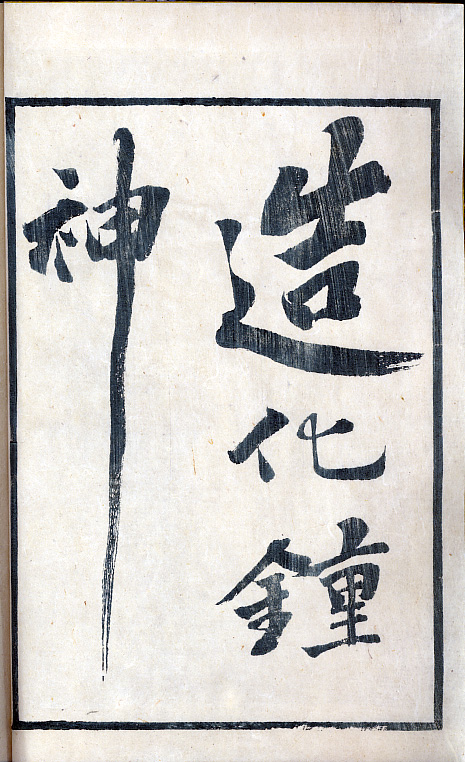 造化鍾
神